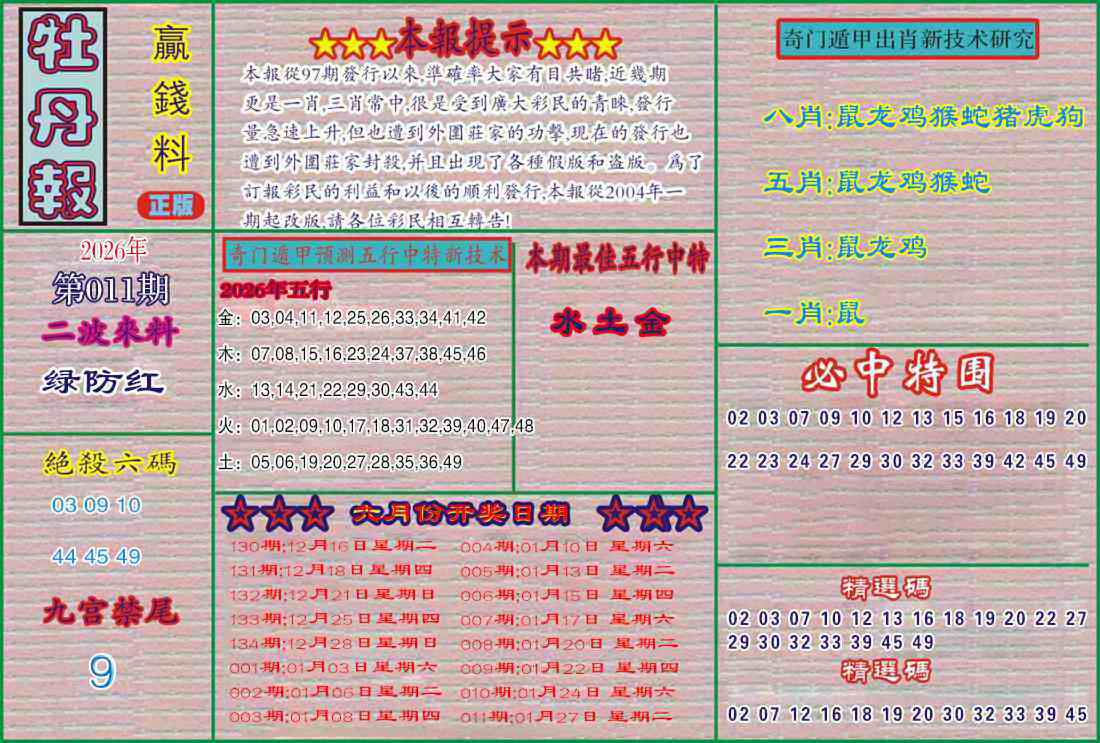 牡丹報
贏錢料
正版
★★★本報提示★★★
本報從97期發行以來,準確率大家有目共睹,近幾期
更是一肖,三肖常中,很是受到廣大彩民的青睞,發行
量急速上升,但也遭到外圍莊家的功擊,現在的發行也
遭到外圍莊家封殺,并且出現了各種假版和盗版。爲了
訂報彩民的利益和以後的順利發行,本報從2004年一
期起改版,請各位彩民相互轉告!
奇门遁甲出肖新技术研究
八肖:鼠龙鸡猴蛇猪虎狗
五肖:鼠龙鸡猴蛇
三肖:鼠龙鸡
一肖:鼠
2026年
第011期
二波來料
绿防红
奇门遁甲预测五行中特新技术
2026年五行
金：03,04,11,12,25,26,33,34,41,42
木：07,08,15,16,23,24,37,38,45,46
水：13,14,21,22,29,30,43,44
火：01,02,09,10,17,18,31,32,39,40,47,48
土：05,06,19,20,27,28,35,36,49
本期最佳五行中特
水土金
必中特围
02 03 07 09 10 12 13 15 16 18 19 20
22 23 24 27 29 30 32 33 39 42 45 49
絕殺六碼
03 09 10
44 45 49
九宫禁尾
9
☆☆☆ 六月份开奖日期 ☆☆☆
130期;12月16日星期二 004期;01月10日 星期六
131期;12月18日星期四 005期;01月13日 星期二
132期;12月21日星期日 006期;01月15日 星期四
133期;12月25日星期四 007期;01月17日 星期六
134期;12月28日星期日 008期;01月20日 星期二
001期;01月03日星期六 009期;01月22日 星期四
002期;01月06日星期二 010期;01月24日 星期六
003期;01月08日星期四 011期;01月27日 星期二
精選碼
02 03 07 10 12 13 16 18 19 20 22 27
29 30 32 33 39 45 49
精選碼
02 07 12 16 18 19 20 30 32 33 39 45